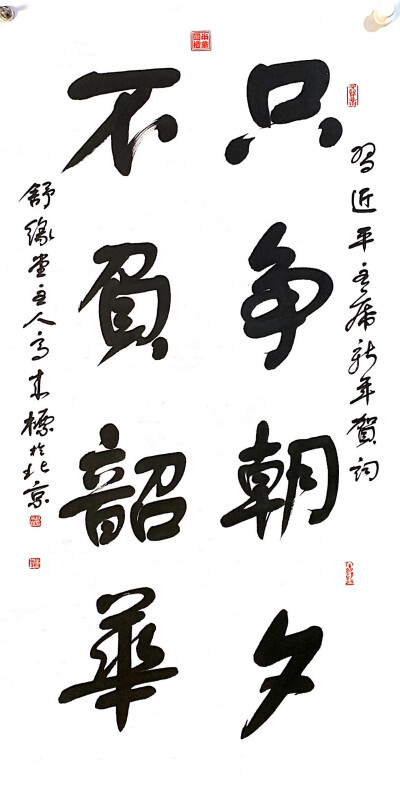 习近平主席新年贺词
只争朝夕
不負韶華
舒缘堂主人高本標於北京